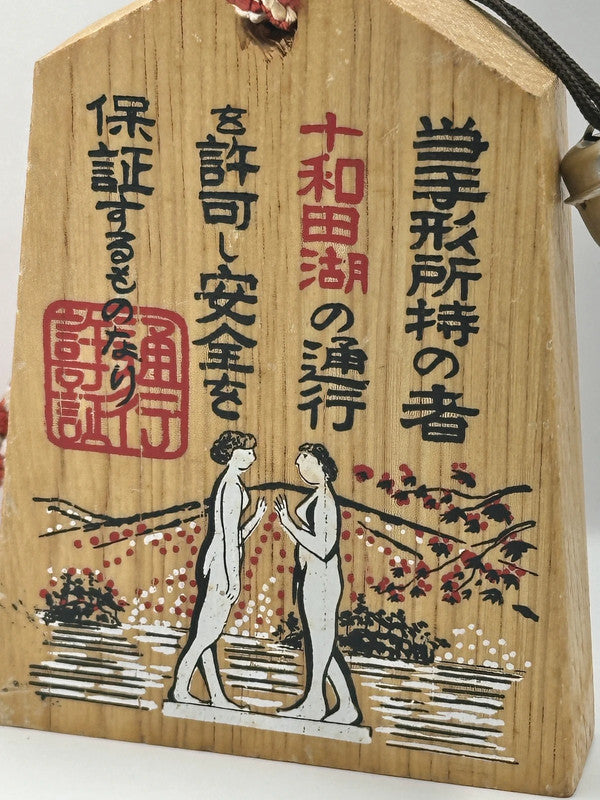 当手形所持の者
十和田湖の通行
を許可し安全を
保証するものなり
通行
許証